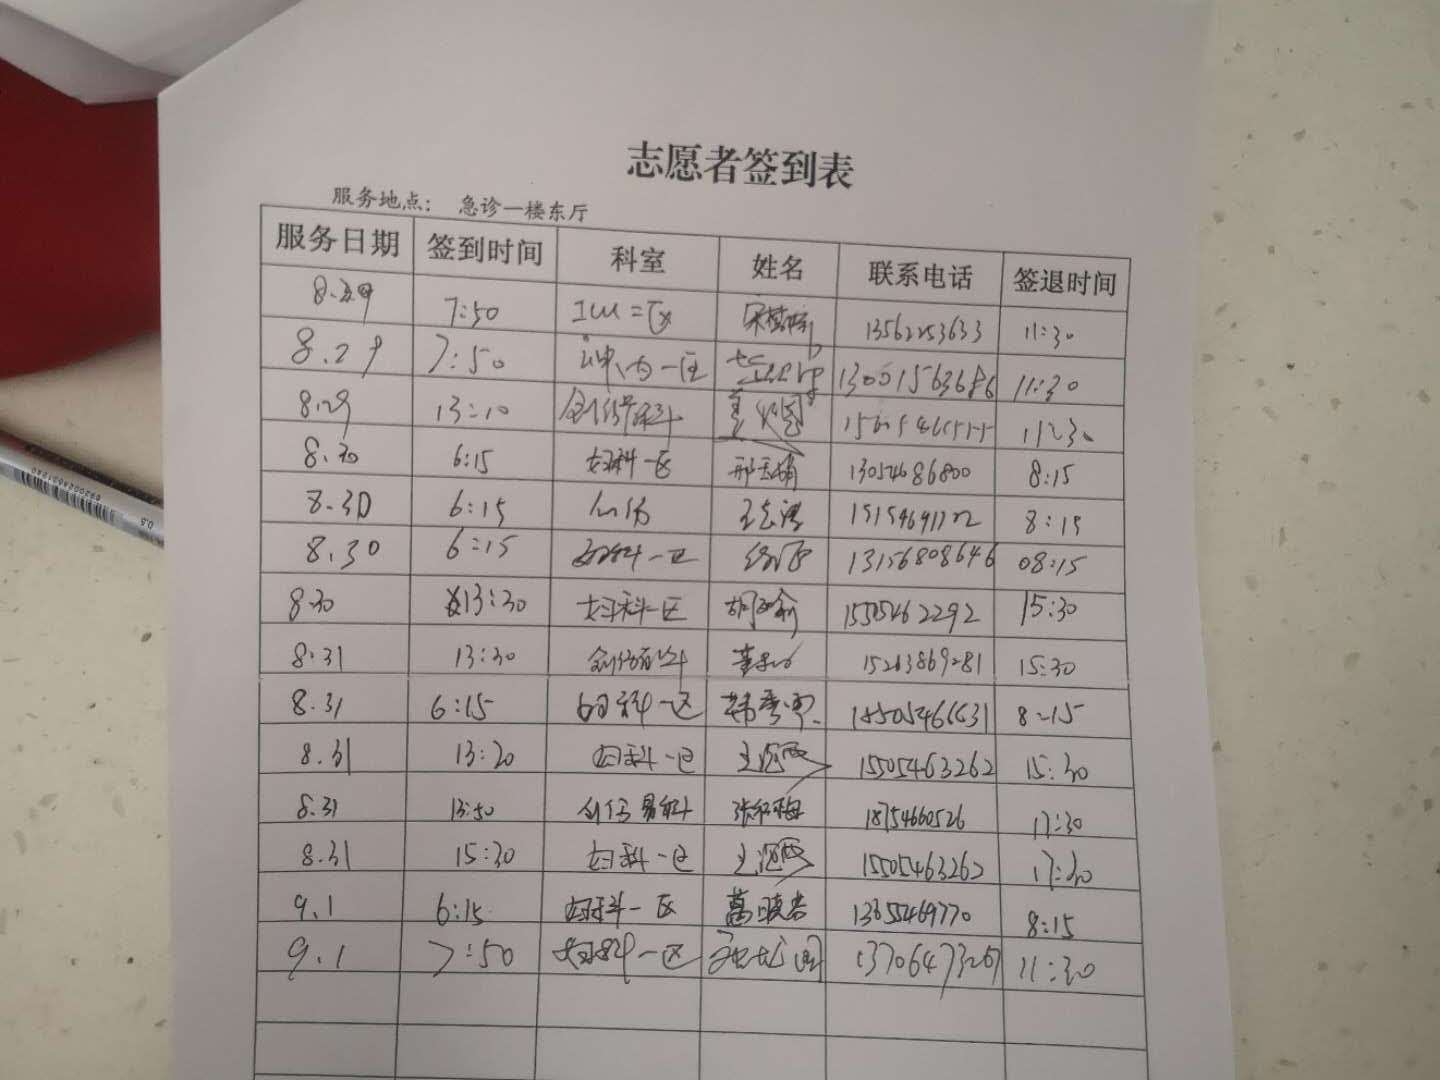 志愿者签到表
服务地点： 急诊一楼东厅
服务日期 签到时间 科室 姓名 联系电话 签退时间
8.29 7:50 ICU二区 13562253633 11:30
8.29 7:50 神内一区 13001563686 11:30
8.29 13:10 创伤骨科 11:30
8.30 6:15 妇科一区 13054686800 8:15
8.30 6:15 8:15
8.30 6:15 妇科一区 13156808646 08:15
8.30 13:30 妇科一区 15505462292 15:30
8.31 13:30 15263869281 15:30
8.31 6:15 妇科一区 18505466631 8:15
8.31 13:30 妇科一区 15505463262 15:30
8.31 13:50 创伤骨科 张红梅 18754660526 17:30
8.31 15:30 妇科一区 15505463262 17:30
9.1 6:15 妇科一区 13655469770 8:15
9.1 7:50 妇科一区 13706473267 11:30